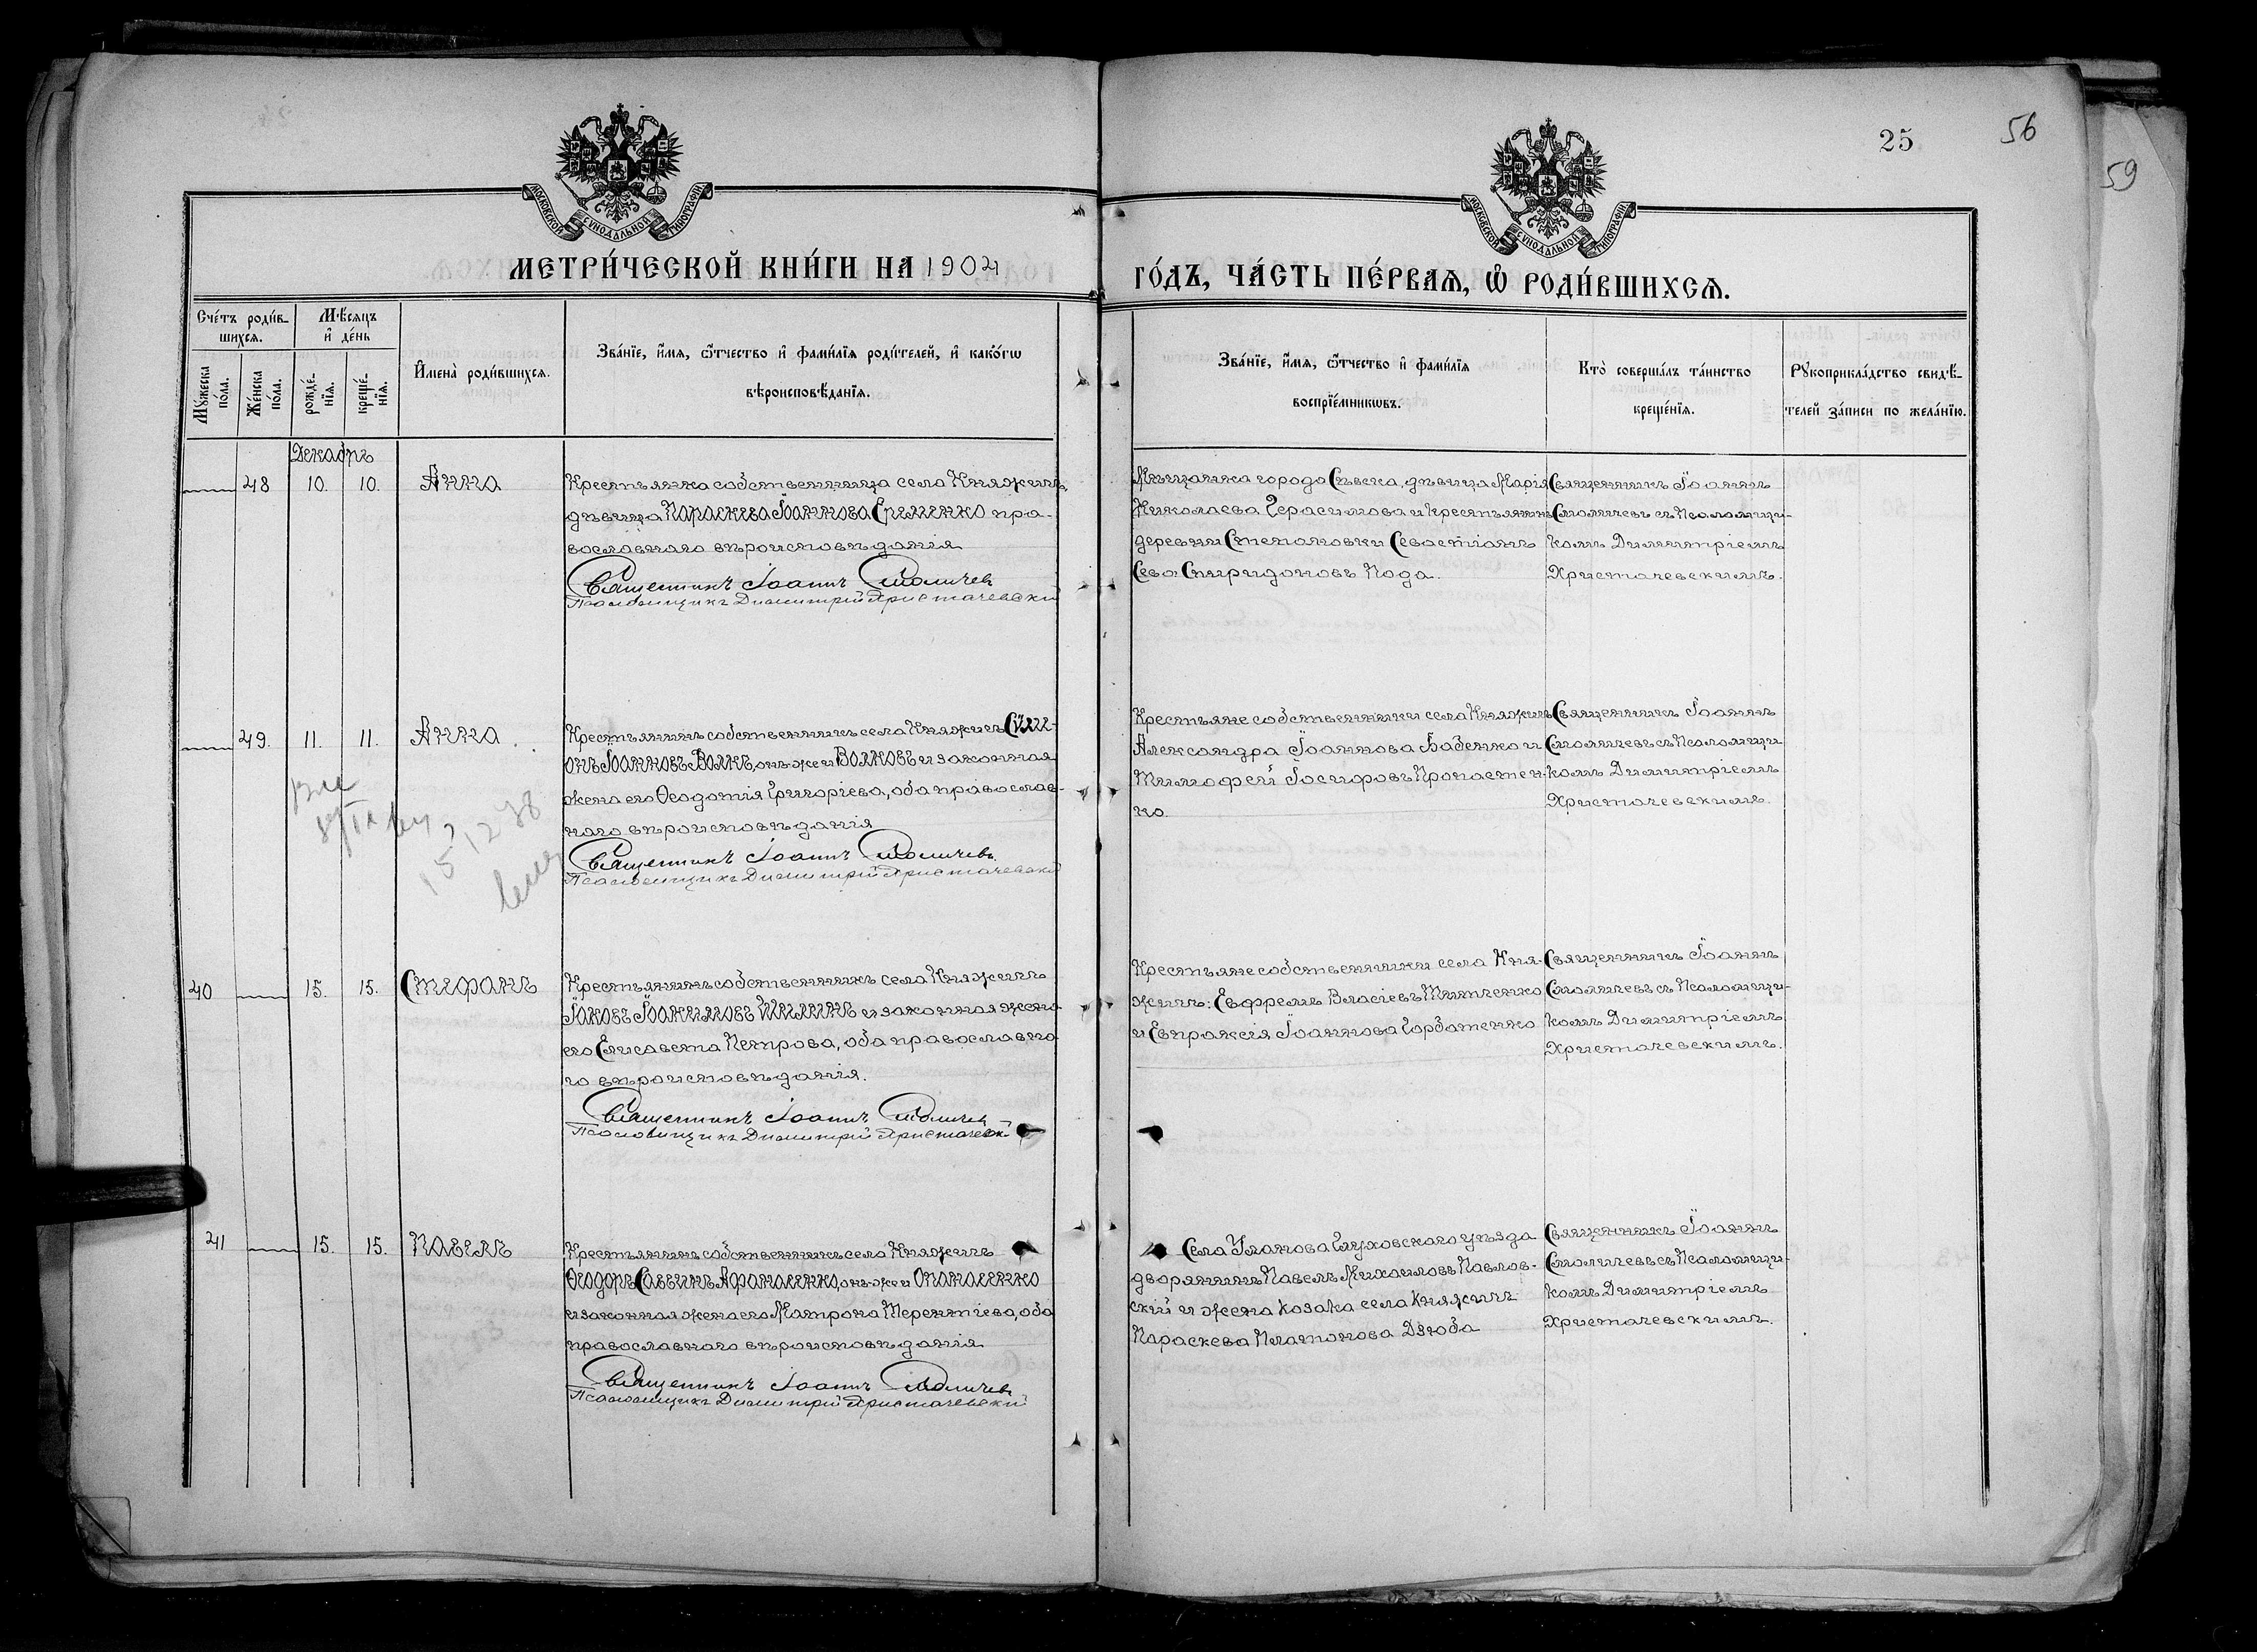 25
56
59
МОСКОВСКОЙ СУНОДАЛЬНОЙ ТИПОГРАФІИ
МОСКОВСКОЙ СУНОДАЛЬНОЙ ТИПОГРАФІИ
МЕТРИ́ЧЕСКОЙ КНИ́ГИ НА 1904
ГО́ДЪ, ЧА́СТЬ ПЕ́РВАЯ, Ѡ РОДИ́ВШИХСЯ.
Сче́тъ роди́в-
шихся.
Мѣ́сяцъ
и҆ де́нь
Мꙋ́жеска
по́ла.
Же́нска
по́ла.
рожде́-
нїя.
креще́-
нїя.
И҆мена̀ роди́вшихся.
Зва́нїе, и҆́мя, ѻ҆́тчество и҆ фами́лїя роди́телей, и҆ како́гѡ
вѣроисповѣ́данїя.
Зва́нїе, и҆́мя, ѻ҆́тчество и҆ фами́лїя
воспрїе́мникѡвъ.
Кто̀ соверша́лъ та́инство
креще́нїя.
Рꙋкоприкла́дство свидѣ́-
телей за́писи по жела́нїю.
Декабрь
48 10. 10. Анна
Крестьянка собственница села Княжичъ,
дѣвица Параскева Іоаннова Еременко пра-
вославнаго вѣроисповѣданія
Священникъ Іоаннъ Смоличевъ
Псаломщикъ Димитрій Христачевскій
Мѣщанка города Сѣвска, дѣвица Марія
Николаева Герасимова и крестьянинъ
деревни Степановки Севастіанъ
Сева Спиридоновъ Пода.
Священникъ Іоаннъ
Смоличевъ съ Псаломщи-
комъ Димитріемъ
Христачевскимъ.
49. 11. 11. Анна
Крестьянинъ собственникъ села Княжичъ Сим-
онъ Іоанновъ Волкъ, онъ-же и Волковъ и законная
жена его Ѳеодотія Григоріева, оба православ-
наго вѣроисповѣданія
Священникъ Іоаннъ Смоличевъ
Псаломщикъ Димитрій Христачевскій
Крестьяне собственники села Княжичъ
Александра Іоаннова Бабенко и
Тимофей Іосифовъ Пропастен-
ко.
Священникъ Іоаннъ
Смоличевъ съ Псаломщи
комъ Димитріемъ
Христачевскимъ.
15 12 38
40 15. 15. Стефанъ
Крестьянинъ собственникъ села Княжичъ
Іаковъ Іоакимовъ Шишинъ и законная жена
его Елисавета Петрова, оба православна
го вѣроисповѣданія.
Священникъ Іоаннъ Смоличевъ
Псаломщикъ Димитрій Христачевск-
Крестьяне собственники села Кня-
жичъ: Евфремъ Власіевъ Титченко
и Евпраксія Іоаннова Горбатенко
Священникъ Іоаннъ
Смоличевъ съ Псаломщи-
комъ Димитріемъ
Христачевскимъ.
41 15. 15. Павелъ
Крестьянинъ собственникъ села Княжичъ
Ѳеодоръ Саввинъ Афанасенко, онъ-же и Опанасенко
и законная жена его Матрона Терентіева, оба
православнаго вѣроисповѣданія
Священникъ Іоаннъ Смоличевъ
Псаломщикъ Димитрій Христачевскій
Села Уланова Глуховского уѣзда
дворянинъ Павелъ Михаиловъ Павлов-
скій и жена козака села Княжичъ
Параскева Платонова Дзюба
Священникъ Іоаннъ
Смоличевъ съ Псаломщи-
комъ Димитріемъ
Христачевскимъ.